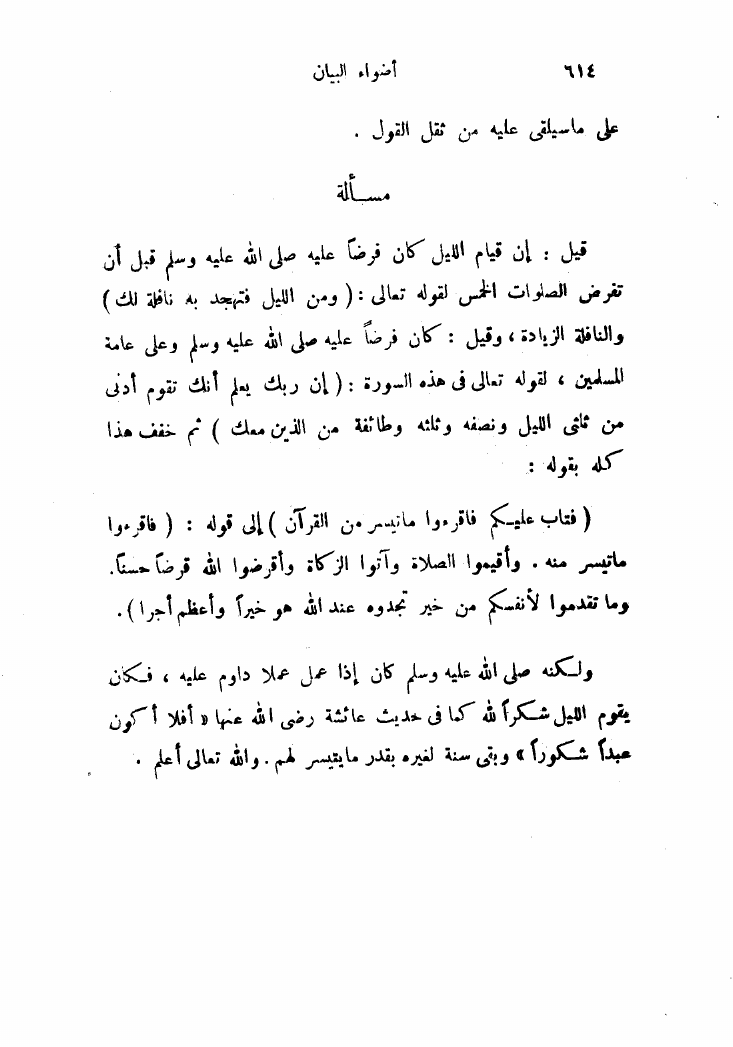 ٦١٤ أضواء البيان
على ماسيلقى عليه من ثقل القول .
مســألة
قيل : إن قيام الليل كان فرضاً عليه صلى الله عليه وسلم قبل أن
تفرض الصلوات الخمس لقوله تعالى : ( ومن الليل فتهجد به نافلة لك )
والنافلة الزيادة ، وقيل : كان فرضاً عليه صلى الله عليه وسلم وعلى عامة
المسلمين ، لقوله تعالى فى هذه السورة : ( إن ربك يعلم أنك تقوم أدنى
من ثلثى الليل ونصفه وثلثه وطائفة من الذين معك ) ثم خفف هذا
كله بقوله :
( فتاب عليكم فاقرءوا ماتيسر من القرآن ) إلى قوله : ( فاقرءوا
ماتيسر منه . وأقيموا الصلاة وآتوا الزكاة وأقرضوا الله قرضاً حسناً.
وما تقدموا لأنفسكم من خير تجدوه عند الله هو خيراً وأعظم أجرا ) .
ولكنه صلى الله عليه وسلم كان إذا عمل عملا داوم عليه ، فكان
يقوم الليل شكراً لله كما فى حديث عائشة رضى الله عنها « أفلا أكون
عبداً شكوراً » وبقى سنة لغيره بقدر مايتيسر لهم . والله تعالى أعلم .